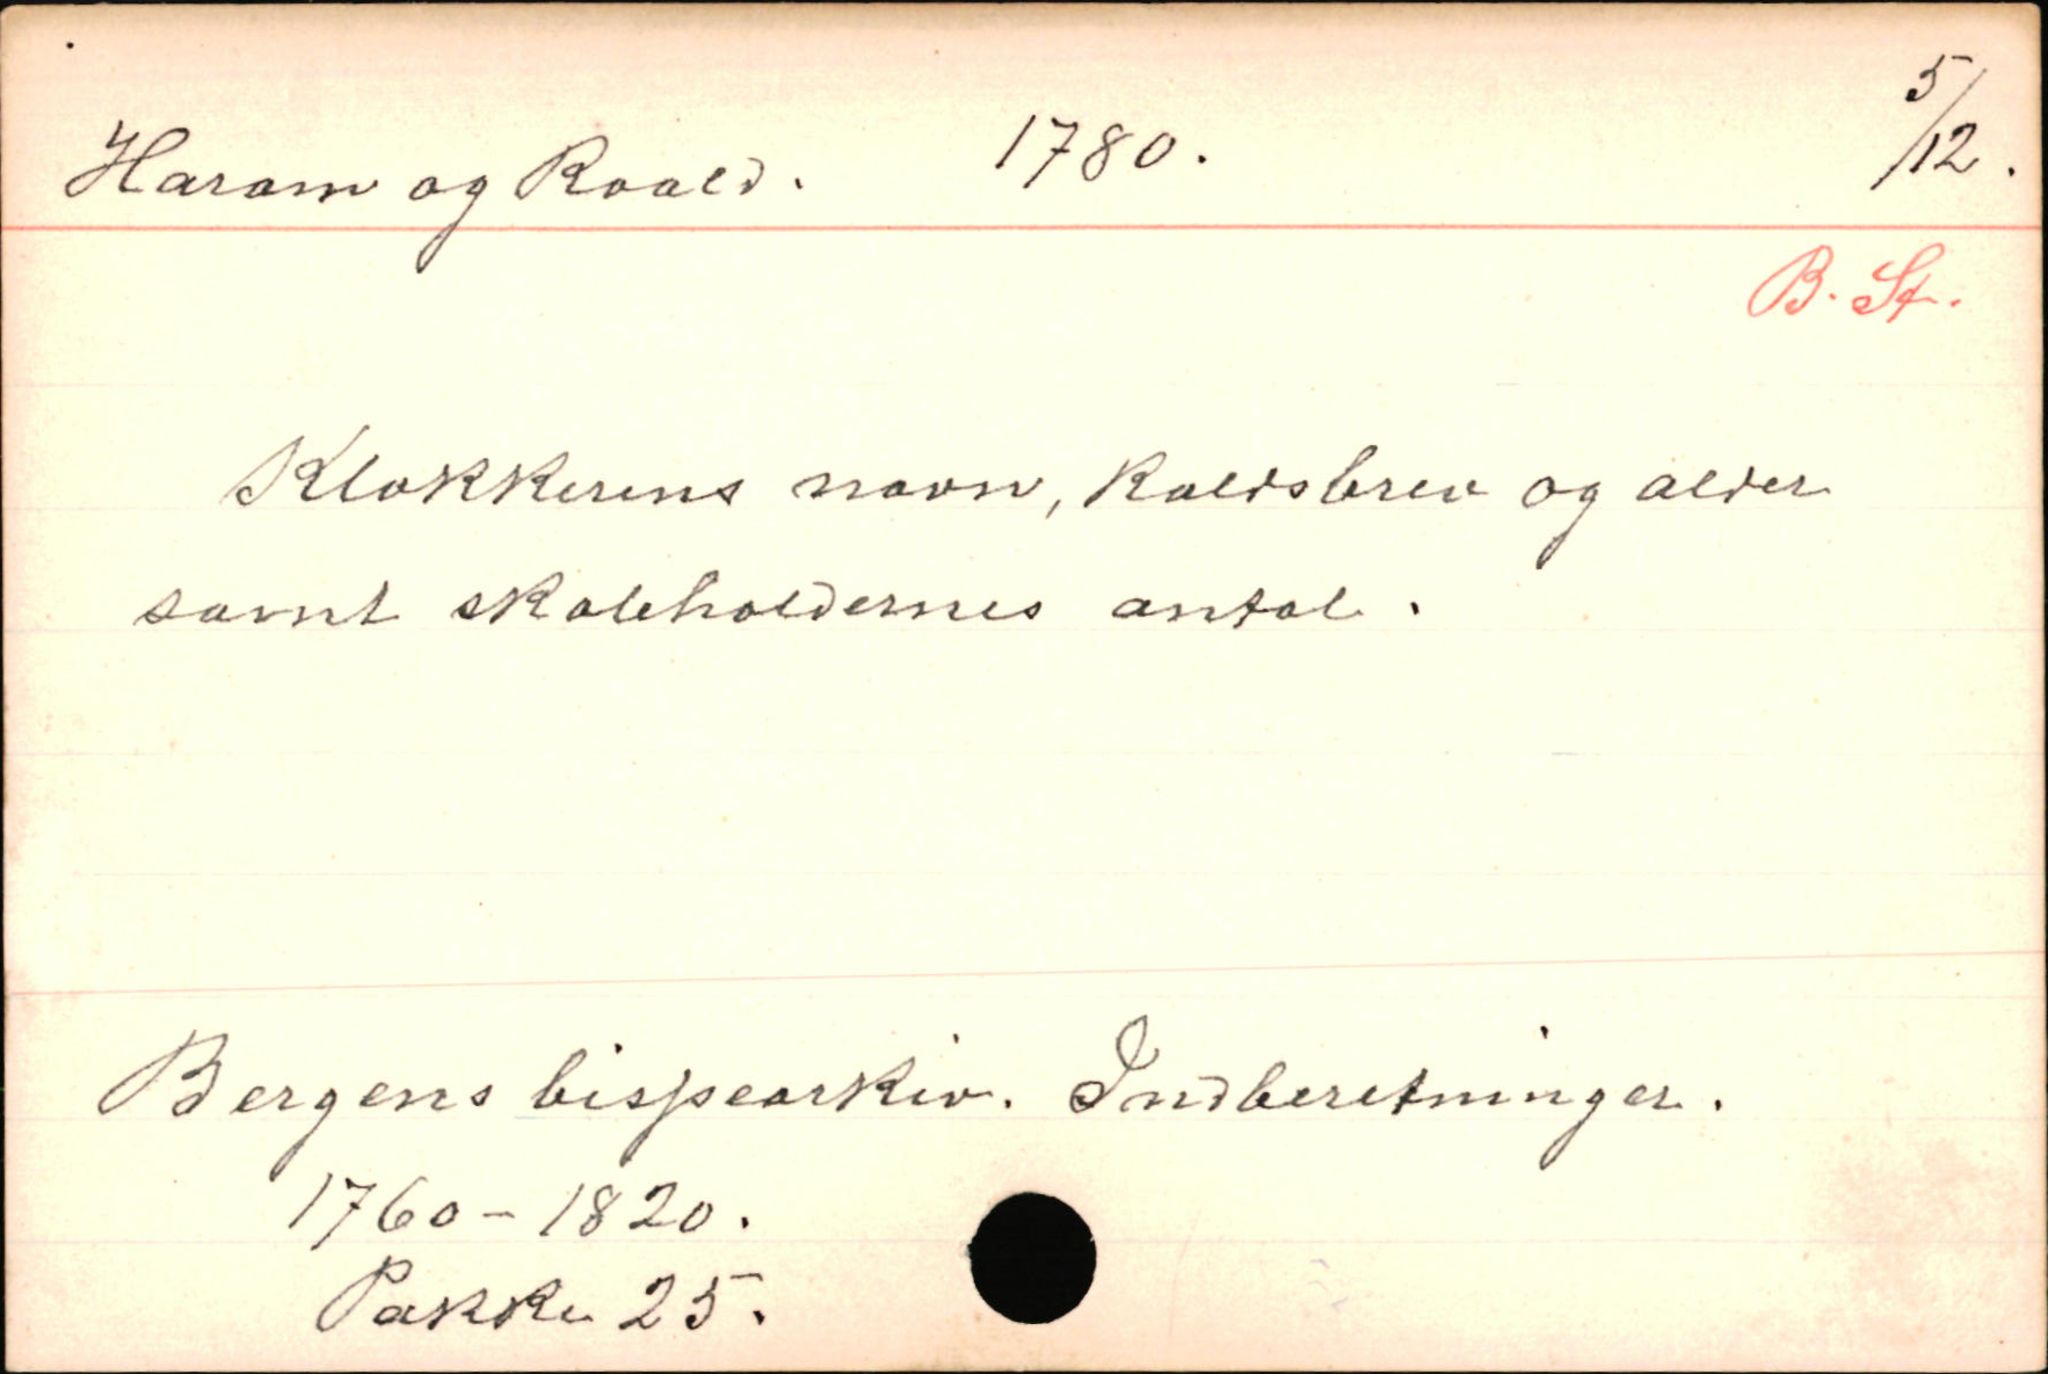 Haram og Roald. 1780. 5/12.
B. St.
Klokkerens navn, kaldsbrev og alder
samt skoleholdernes antal.
Bergens bispearkiv. Indberetninger.
1760-1820.
Pakke 25.